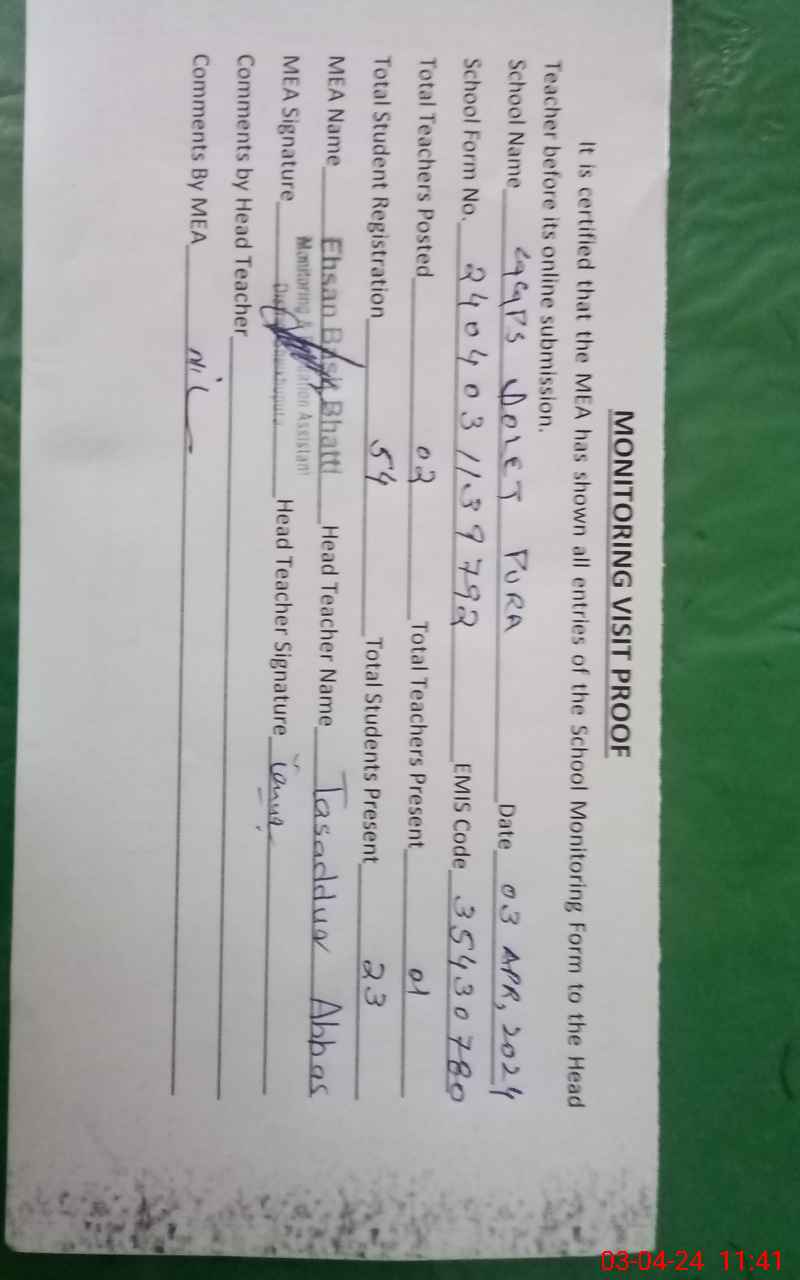 MONITORING VISIT PROOF
It is certified that the MEA has shown all entries of the School Monitoring Form to the Head
Teacher before its online submission.
School Name GGPS DOLET PURA Date 03 APR, 2024
School Form No. 2404031139792 EMIS Code 35430780
Total Teachers Posted 02 Total Teachers Present 01
Total Student Registration 54 Total Students Present 23
MEA Name Ehsan Basit Bhatti Head Teacher Name Tasadduq Abbas
Monitoring & Assistant
MEA Signature Head Teacher Signature
Comments by Head Teacher
Comments By MEA NiL
03-04-24 11:41